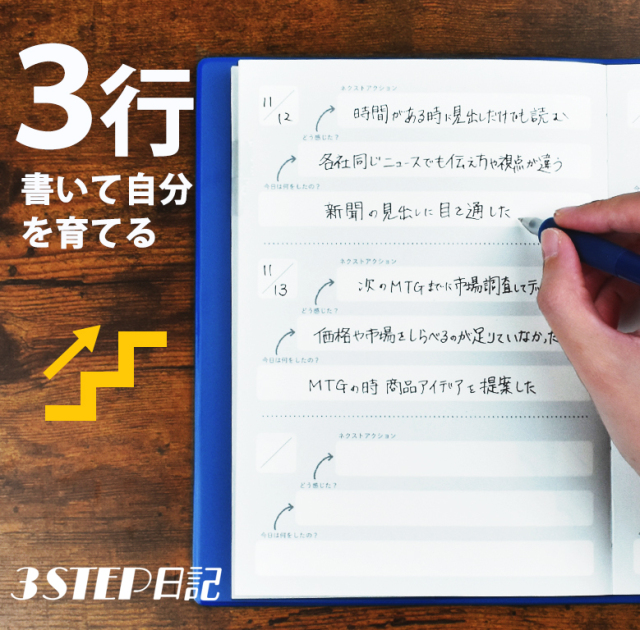 3行
書いて自分
を育てる
11/12
ネクストアクション
時間がある時に見出しだけでも読む
どう感じた?
各社同じニュースでも伝え方や視点が違う
今日は何をしたの?
新聞の見出しに目を通した
11/13
ネクストアクション
次のMTGまでに市場調査して
どう感じた?
価格や市場をしらべるのが足りていなかった
今日は何をしたの?
MTGの時 商品アイデアを提案した
ネクストアクション
どう感じた?
今日は何をしたの?
3STEP日記